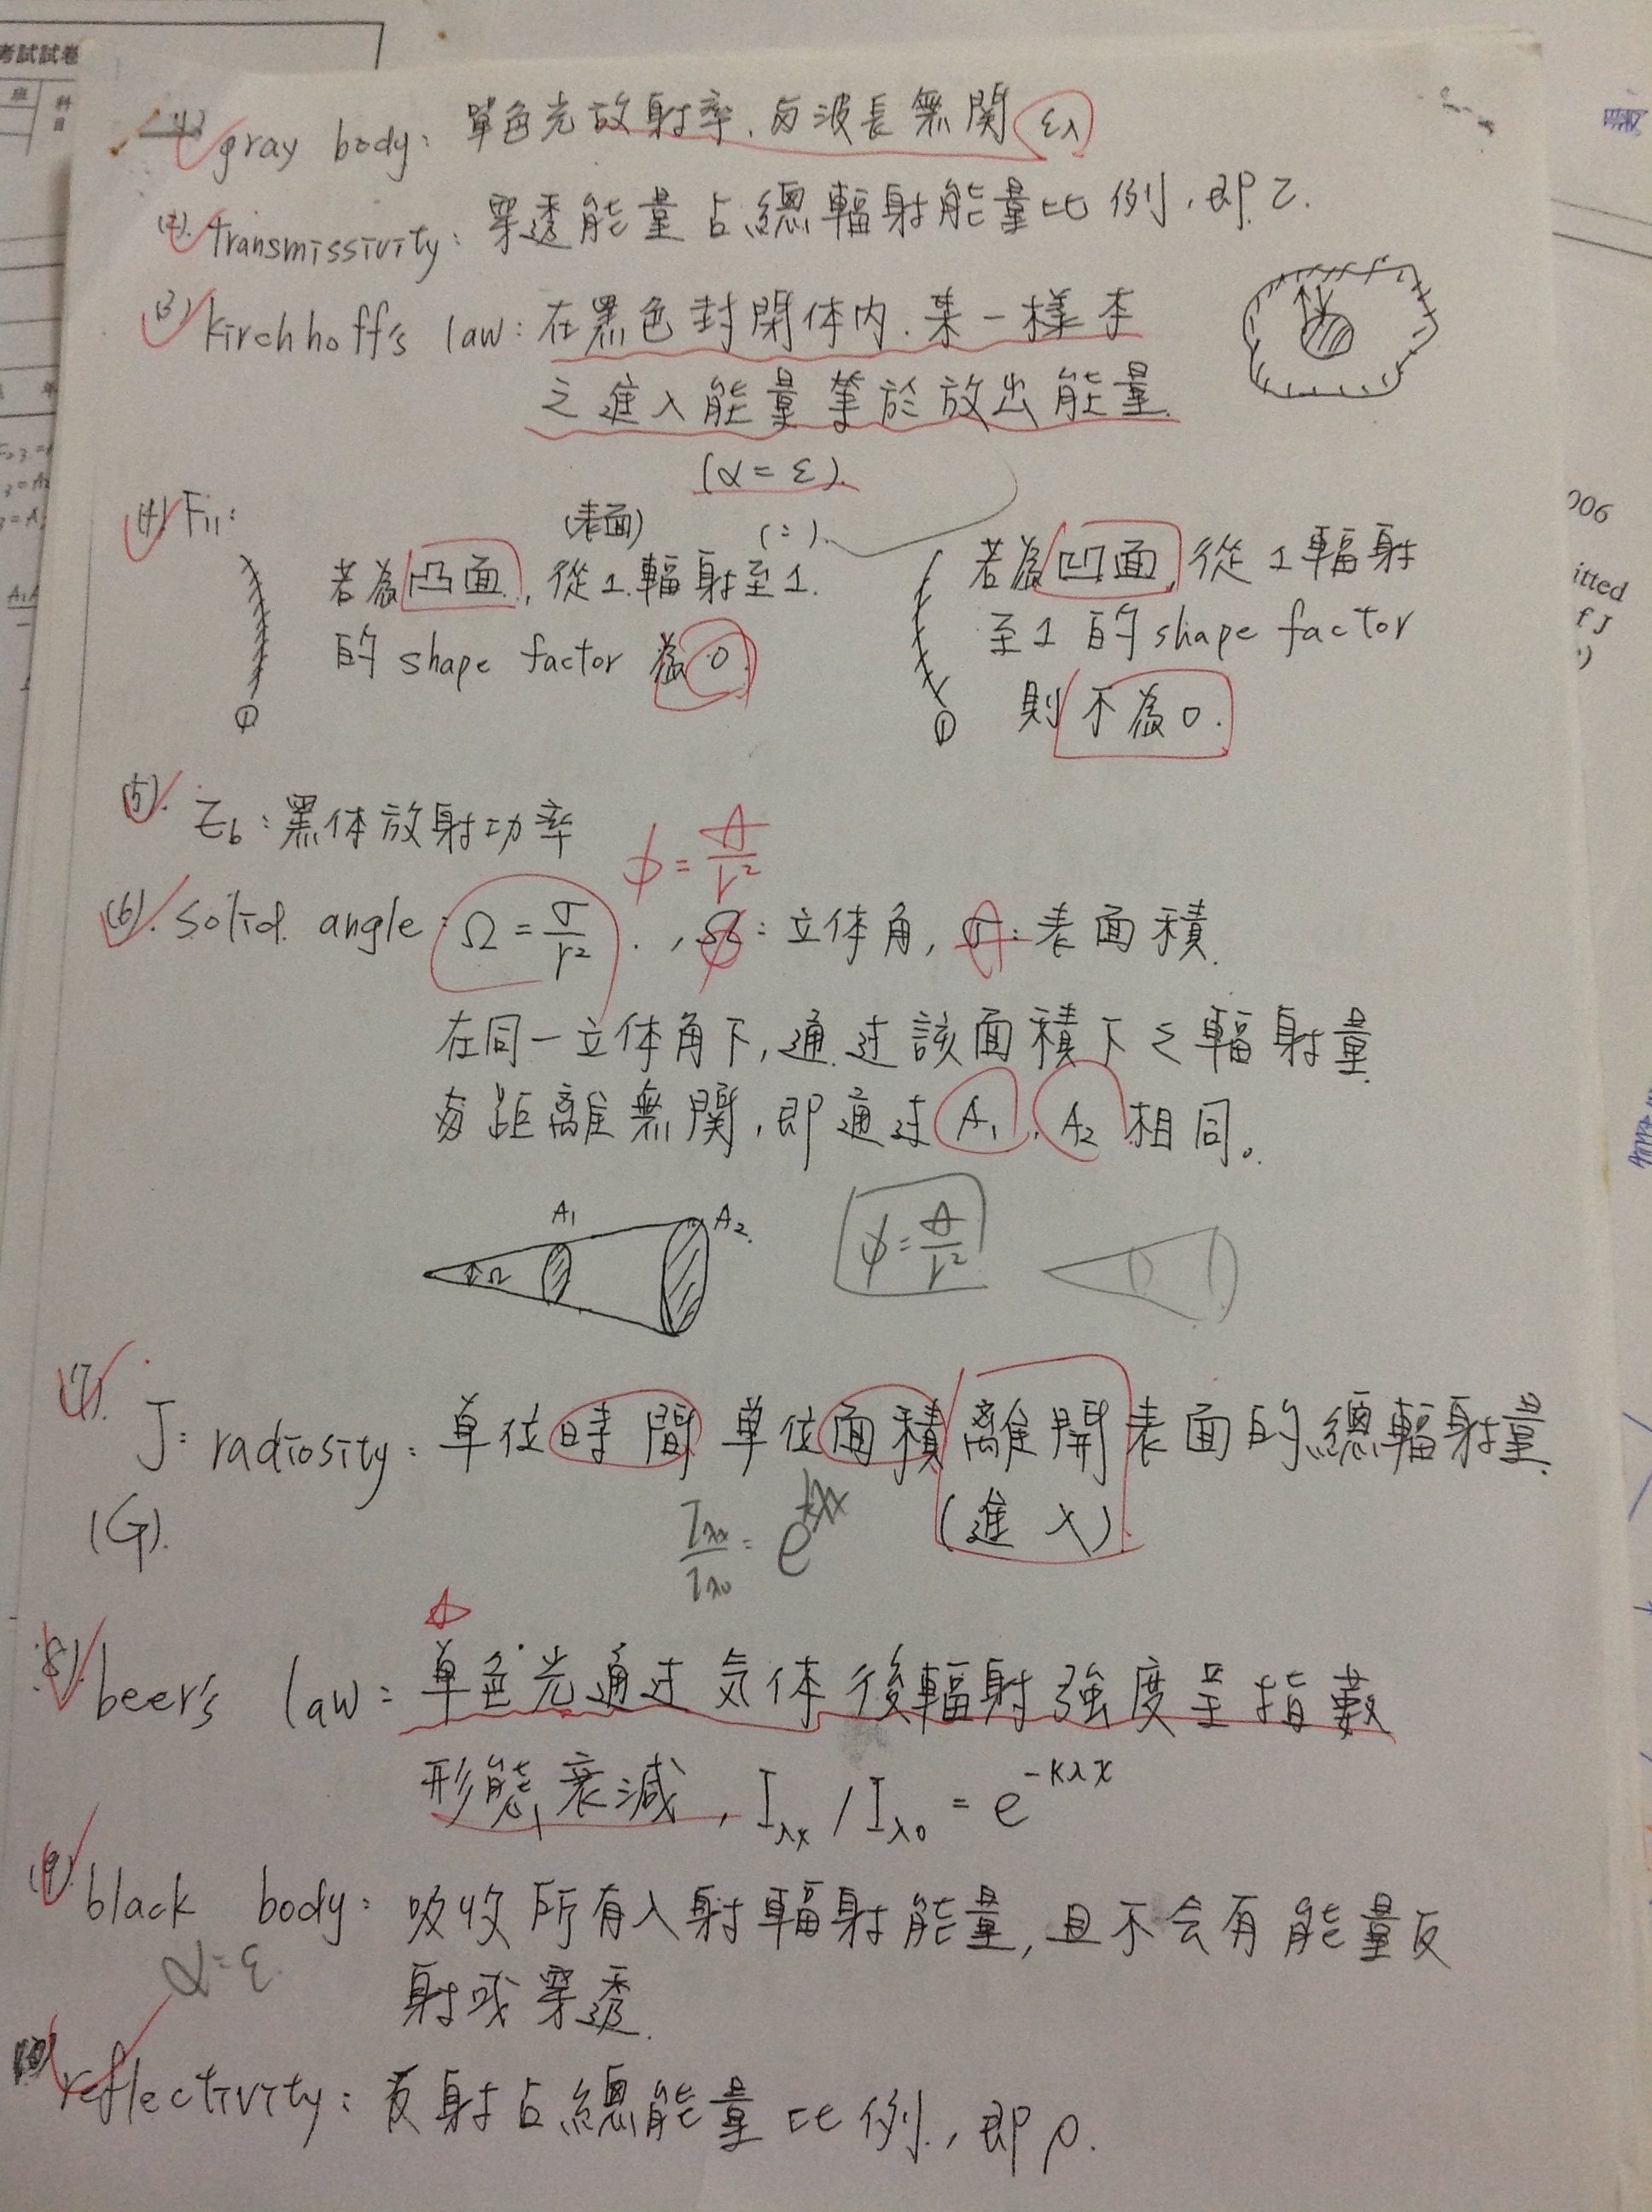 考試試卷
班
科目
(1) gray body: 單色光放射率,与波長無関 ελ
(2). transmissivity: 穿透能量占總輻射能量比例,即τ.
(3) kirchhoff's law: 在黑色封閉体內,某一樣本
之進入能量等於放出能量.
(α=ε).
(4) F11:
(表面)
(=).
若為凸面,從1輻射至1.
的 shape factor 為0.
①
若為凹面,從1輻射
至1的 shape factor
則不為0.
①
(5). Eb: 黑体放射功率
φ=A/r²
(6). solid angle: Ω=σ/r². , Ω: 立体角, σ: 表面積.
在同一立体角下,通过該面積下之輻射量
与距離無関,即通过A1, A2相同。
A1
A2.
Ω
φ=A/r²
(7). J: radiosity: 单位時間单位面積離開表面的總輻射量.
(G).
(進入).
Iλx/Iλ0=e
(8). beer's law: 单色光通过気体後輻射強度呈指數
形態衰減, Iλx/Iλ0=e^-κλx
(9). black body: 吸收所有入射輻射能量,且不会有能量反
射或穿透.
α=ε.
(10) reflectivity: 反射占總能量比例,即ρ.
006
itted
f J